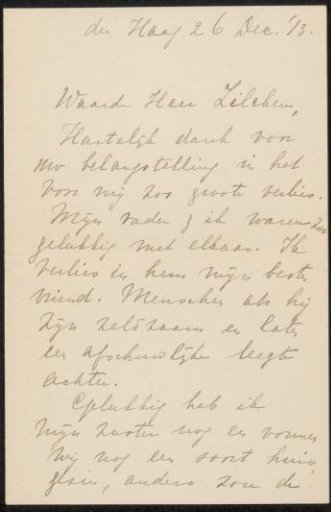 den Haag 26 Dec. '13.
Waarde Heer Zilcken,
Hartelijk dank voor
uw belangstelling in het
voor mij zoo groote verlies.
Mijn vader & ik waren zoo
gelukkig met elkaar. Ik
verlies in hem mijn beste
vriend. Menschen als hij
zijn zeldzaam en laten
een afschuwelijke leegte
achter.
Gelukkig heb ik
mijn zuster nog en vormen
wij nog een soort huis
gezin, anders zou de